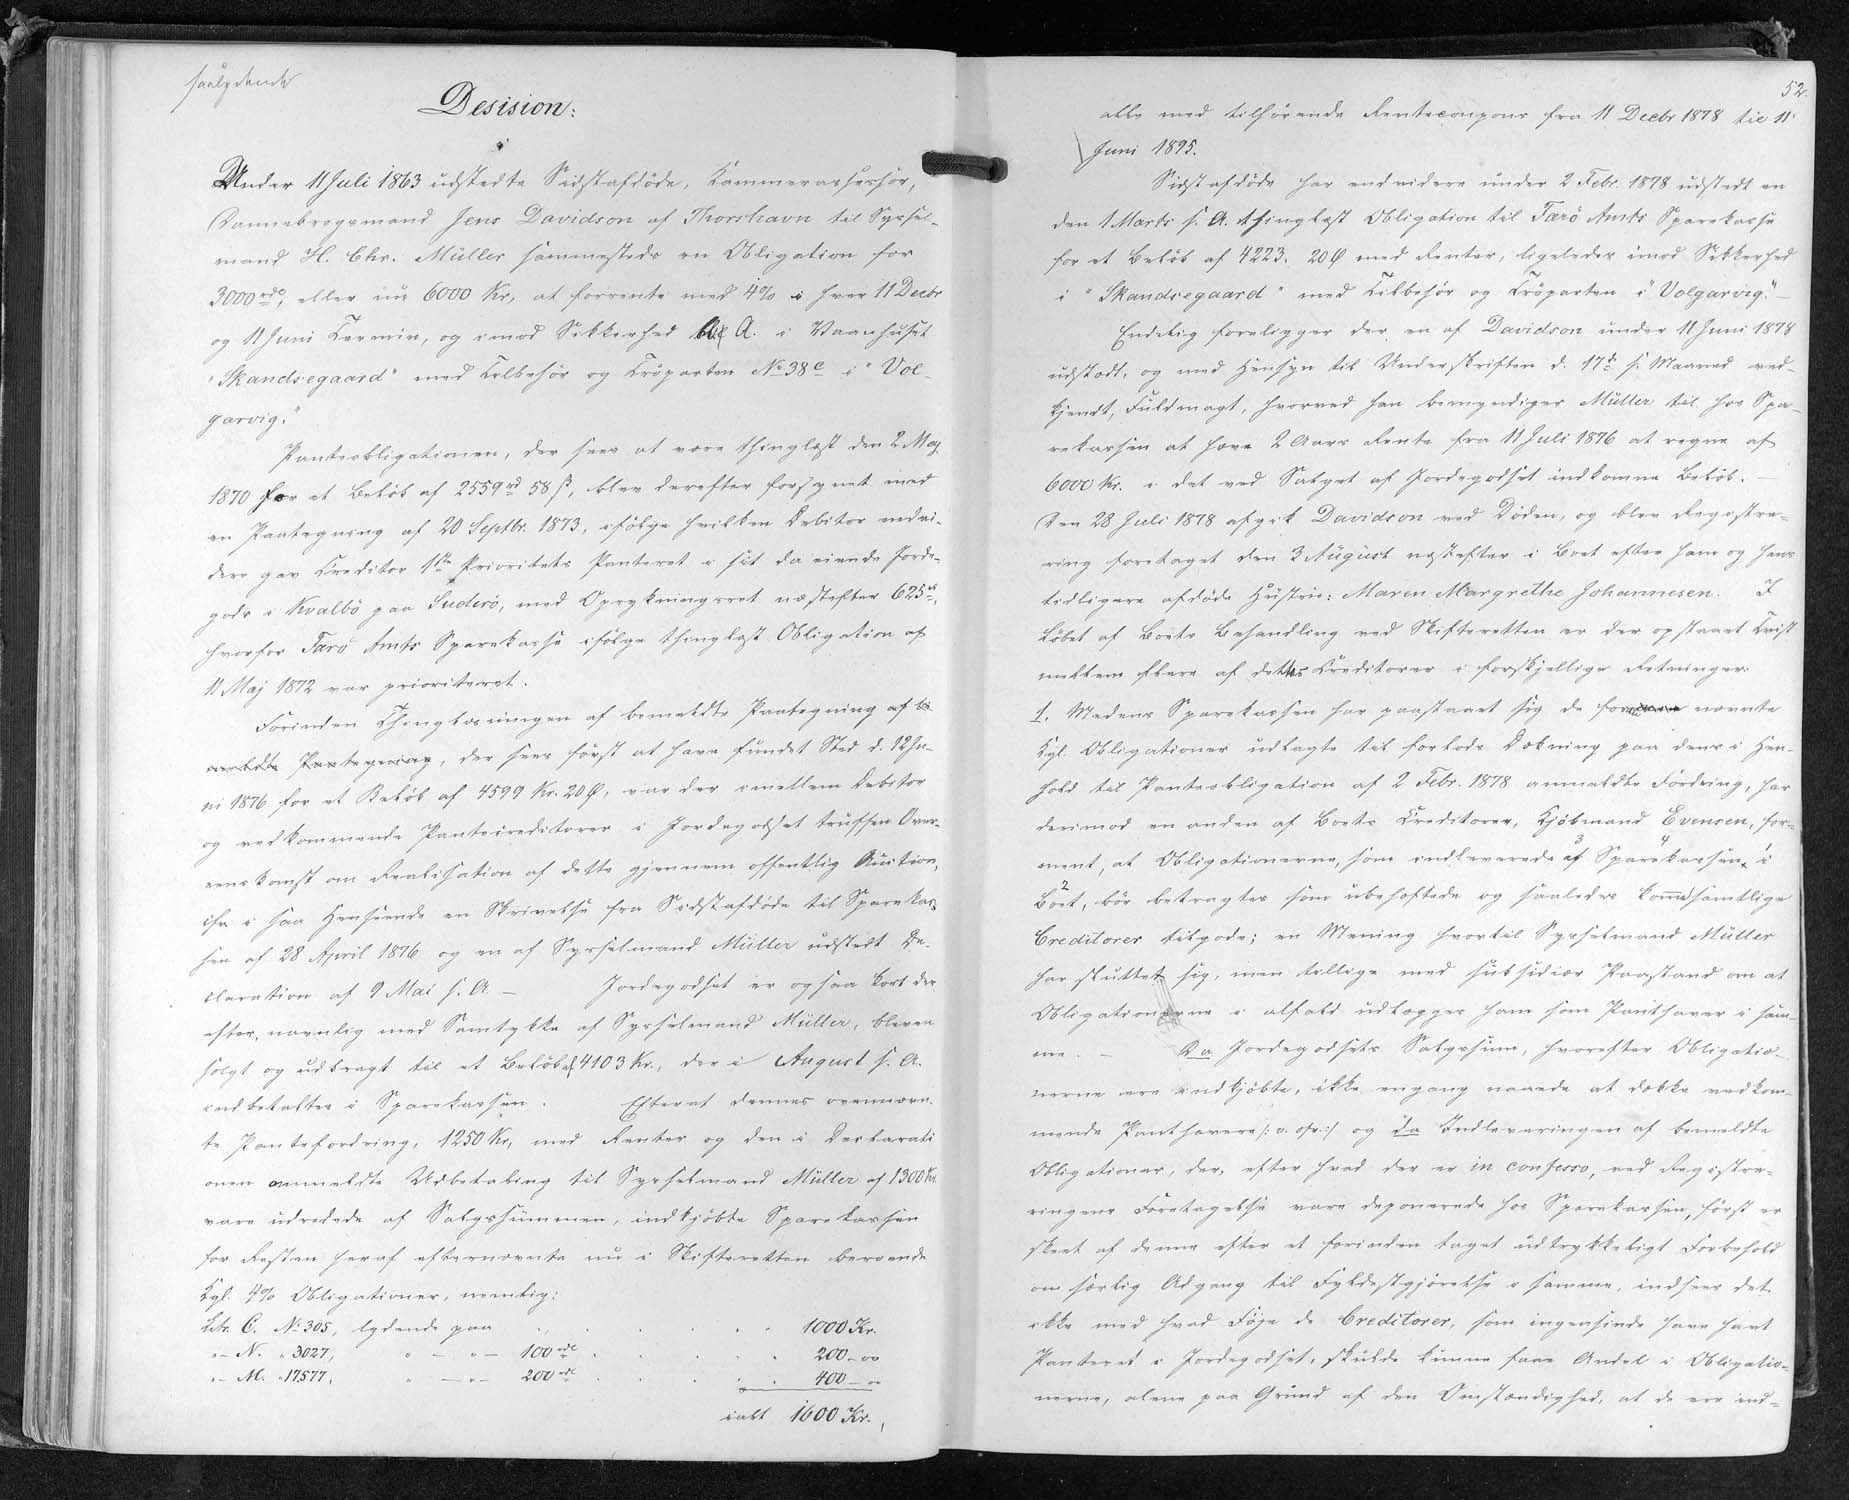 saalydende
Desision:
Under 11 Juli 1863 udstedte Sidstafdöde, Kammerassessor,
Dannebrogsmand Jens Davidson af Thorshavn til Syssel-
mand H. Chr. Müller sammesteds en Obligation for
3000 rdl, eller nu 6000 Kr, at forrente med 4% i hver 11 Decbr
og 11 Juni Termin, og imod Sikkerhed bl. A. i Vaanhuset
"Skandsegaard" med Tilbehör og Tröparten No 38 c i "Vol-
garvig."
Panteobligationen, der sees at være thinglæst den 2 Maj
1870 for et Belöb af 2559 rd 58 ß, blev derefter forsynet med
en Paategning af 20 Septbr. 1873, ifölge hvilken Debitor endvi-
dere gav Creditor 1ste Prioritets Panteret i sit da eiende Jorde-
gods i Kvalbö paa Suderö, med Oprykningsret næstefter 625 rd,
hvorfor Farö Amts Sparekasse ifölge thinglæst Obligation af
11 Maj 1872 var prioriteret.
Forinden Thinglæsningen af bemeldte Paategning af be-
meldte Paategning, der sees först at have fundet Sted d. 12 Ju-
ni 1876 for et Belöb af 4599 Kr. 20 Ø, var der imellem Debitor
og vedkommende Pantecreditorer i Jordegodset truffen Over-
eenskomst om Realisation af dette gjennem offentlig Auction,
cfr i saa Henseende en Skrivelse fra Sidstafdöde til Sparekas-
sen af 28 April 1876 og en af Sysselmand Müller udstedt De-
claration af 9 Mai s. A. – Jordegodset er ogsaa kort der-
efter, navnlig med Samtykke af Sysselmand Müller, bleven
solgt og udbragt til et Belöb af 4103 Kr., der i August s. A.
indbetaltes i Sparekassen. Efterat dennes ovennævn-
te Pantefordring, 1250 Kr, med Renter og den i Declarati
onen ommeldte Udbetaling til Sysselmand Müller af 1300 Kr.
vare udredede af Salgssummen, indkjöbte Sparekassen
for Resten heraf efternævnte nu i Skifteretten beroende
Kgl. 4% Obligationer, nemlig:
Litr. C. No 305, lydende paa 1000 Kr.
"– N. " 3027, " –"– 100 rdl 200 – "
"– M. " 17577, " –"– 200 rdl 400 – "
ialt 1600 Kr.,
52.
alle med tilhörende Rentecoupons fra 11 Decbr 1878 til 11
Juni 1895.
Sidstafdöde har endvidere under 2 Febr. 1878 udstedt en
den 1 Marts s. A. thinglæst Obligation til Farö Amts Sparekasse
for et Belöb af 4223. 20 Ø med Renter, ligeledes imod Sikkerhed
i "Skandsegaard" med Tilbehör og Tröparten i "Volgarvig". –
Endelig foreligger der en af Davidson under 11 Juni 1878
udstedt, og med Hensyn til Underskriften d. 17d s. Maaned ved-
kjendt, Fuldmagt, hvorved han bemyndiger Müller til hos Spa-
rekassen at hæve 2 Aars Rente fra 11 Juli 1876 at regne af
6000 Kr. i det ved Salget af Jordegodset indkomne Belöb. –
Den 28 Juli 1878 afgik Davidson ved Döden, og blev Registre-
ring foretaget den 3 August næstefter i Boet efter ham og hans
tidligere afdöde Hustru: Maren Margrethe Johannesen. I
Löbet af Boets Behandling ved Skifteretten er der opstaaet Tvist
mellem flere af dettes Creditorer i forskjellige Retninger.
1. Medens Sparekassen har paastaaet sig de nævnte
Kgl. Obligationer udlagte til forlods Dækning paa dens i Hen-
hold til Panteobligation af 2 Febr. 1878 anmeldte Fordring, har
derimod en anden af Boets Creditorer, Kjöbmand Evensen, for-
ment, at Obligationerne, som indleverede af 3 Sparekassen 4 i 1
Boet 2, bör betragtes som ubehæftede og saaledes komme samtlige
Creditorer tilgode; en Mening hvortil Sysselmand Müller
har sluttet sig, men tillige med subsidiær Paastand om at
Obligationerne i alfald udlægges ham som Panthaver i sam-
me. – Da Jordegodsets Salgssum, hvorefter Obligatio-
nerne ere indkjöbte, ikke engang naaede at dække vedkom-
mende Panthavere /: v. ofr. :/ og da Indleveringen af bemeldte
Obligationer, der, efter hvad der er in confesso, ved Registre-
ringens Foretagelse vare deponerede hos Sparekassen, först er
skeet af denne efter et forinden taget udtrykkeligt Forbehold
om særlig Adgang til Fyldestgjörelse i samme, indsees det
ikke med hvad Föje de Creditorer, som ingensinde have havt
Panteret i Jordegodset, skulde kunne faae Andel i Obligatio-
nerne, alene paa Grund af den Omstændighed, at de ere ind-